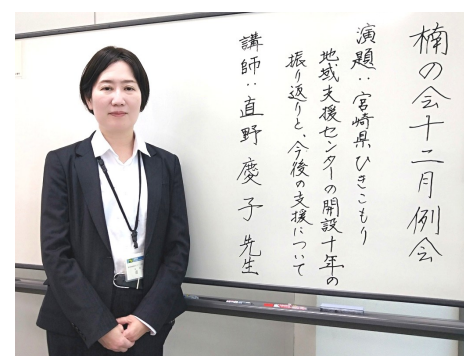 楠の会十二月例会
演題：宮崎県ひきこもり
地域支援センターの開設十年の
振り返りと、今後の支援について
講師：直野慶子先生